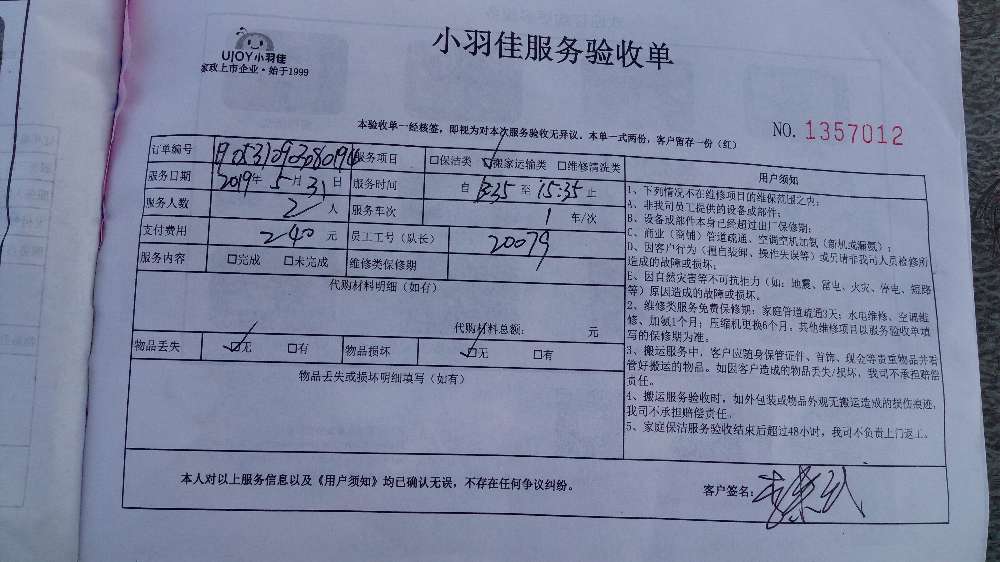 UJOY小羽佳
家政上市企业·始于1999
小羽佳服务验收单
本验收单一经核签，即视为对本次服务验收无异议。本单一式两份，客户留存一份（红）
NO. 1357012
订单编号 服务项目 □保洁类 ☑搬家运输类 □维修清洗类
服务日期 2019年5月31日 服务时间 自 13:35 至 15:35 止
服务人数 2人 服务车次 1 车/次
支付费用 240 元 员工工号（队长） 20079
服务内容 □完成 □未完成 维修类保修期
代购材料明细（如有）
代购材料总额： 元
物品丢失 ☑无 □有 物品损坏 ☑无 □有
物品丢失或损坏明细填写（如有）
用户须知
1、下列情况不在维修项目的维保范围之内：
A、非我司员工提供的设备或部件；
B、设备或部件本身已经超过出厂保修期；
C、商业（商铺）管道疏通、空调空机加氨（新机或漏氨）；
D、因客户行为（擅自装卸、操作失误等）或另请非我司人员检修所
造成的故障或损坏；
E、因自然灾害等不可抗拒力（如：地震、雷电、火灾、停电、短路
等）原因造成的故障或损坏。
2、维修类服务免费保修期：家庭管道疏通3天；水电维修、空调维
修、加氨1个月；压缩机更换6个月；其他维修项目以服务验收单填
写的保修期为准。
3、搬运服务中，客户应随身保管证件、首饰、现金等贵重物品并看
管好搬运的物品。如因客户造成的物品丢失/损坏，我司不承担赔偿
责任。
4、搬运服务验收时，如外包装或物品外观无搬运造成的损伤痕迹，
我司不承担赔偿责任。
5、家庭保洁服务验收结束后超过48小时，我司不负责上门返工。
本人对以上服务信息以及《用户须知》均已确认无误，不存在任何争议纠纷。
客户签名：